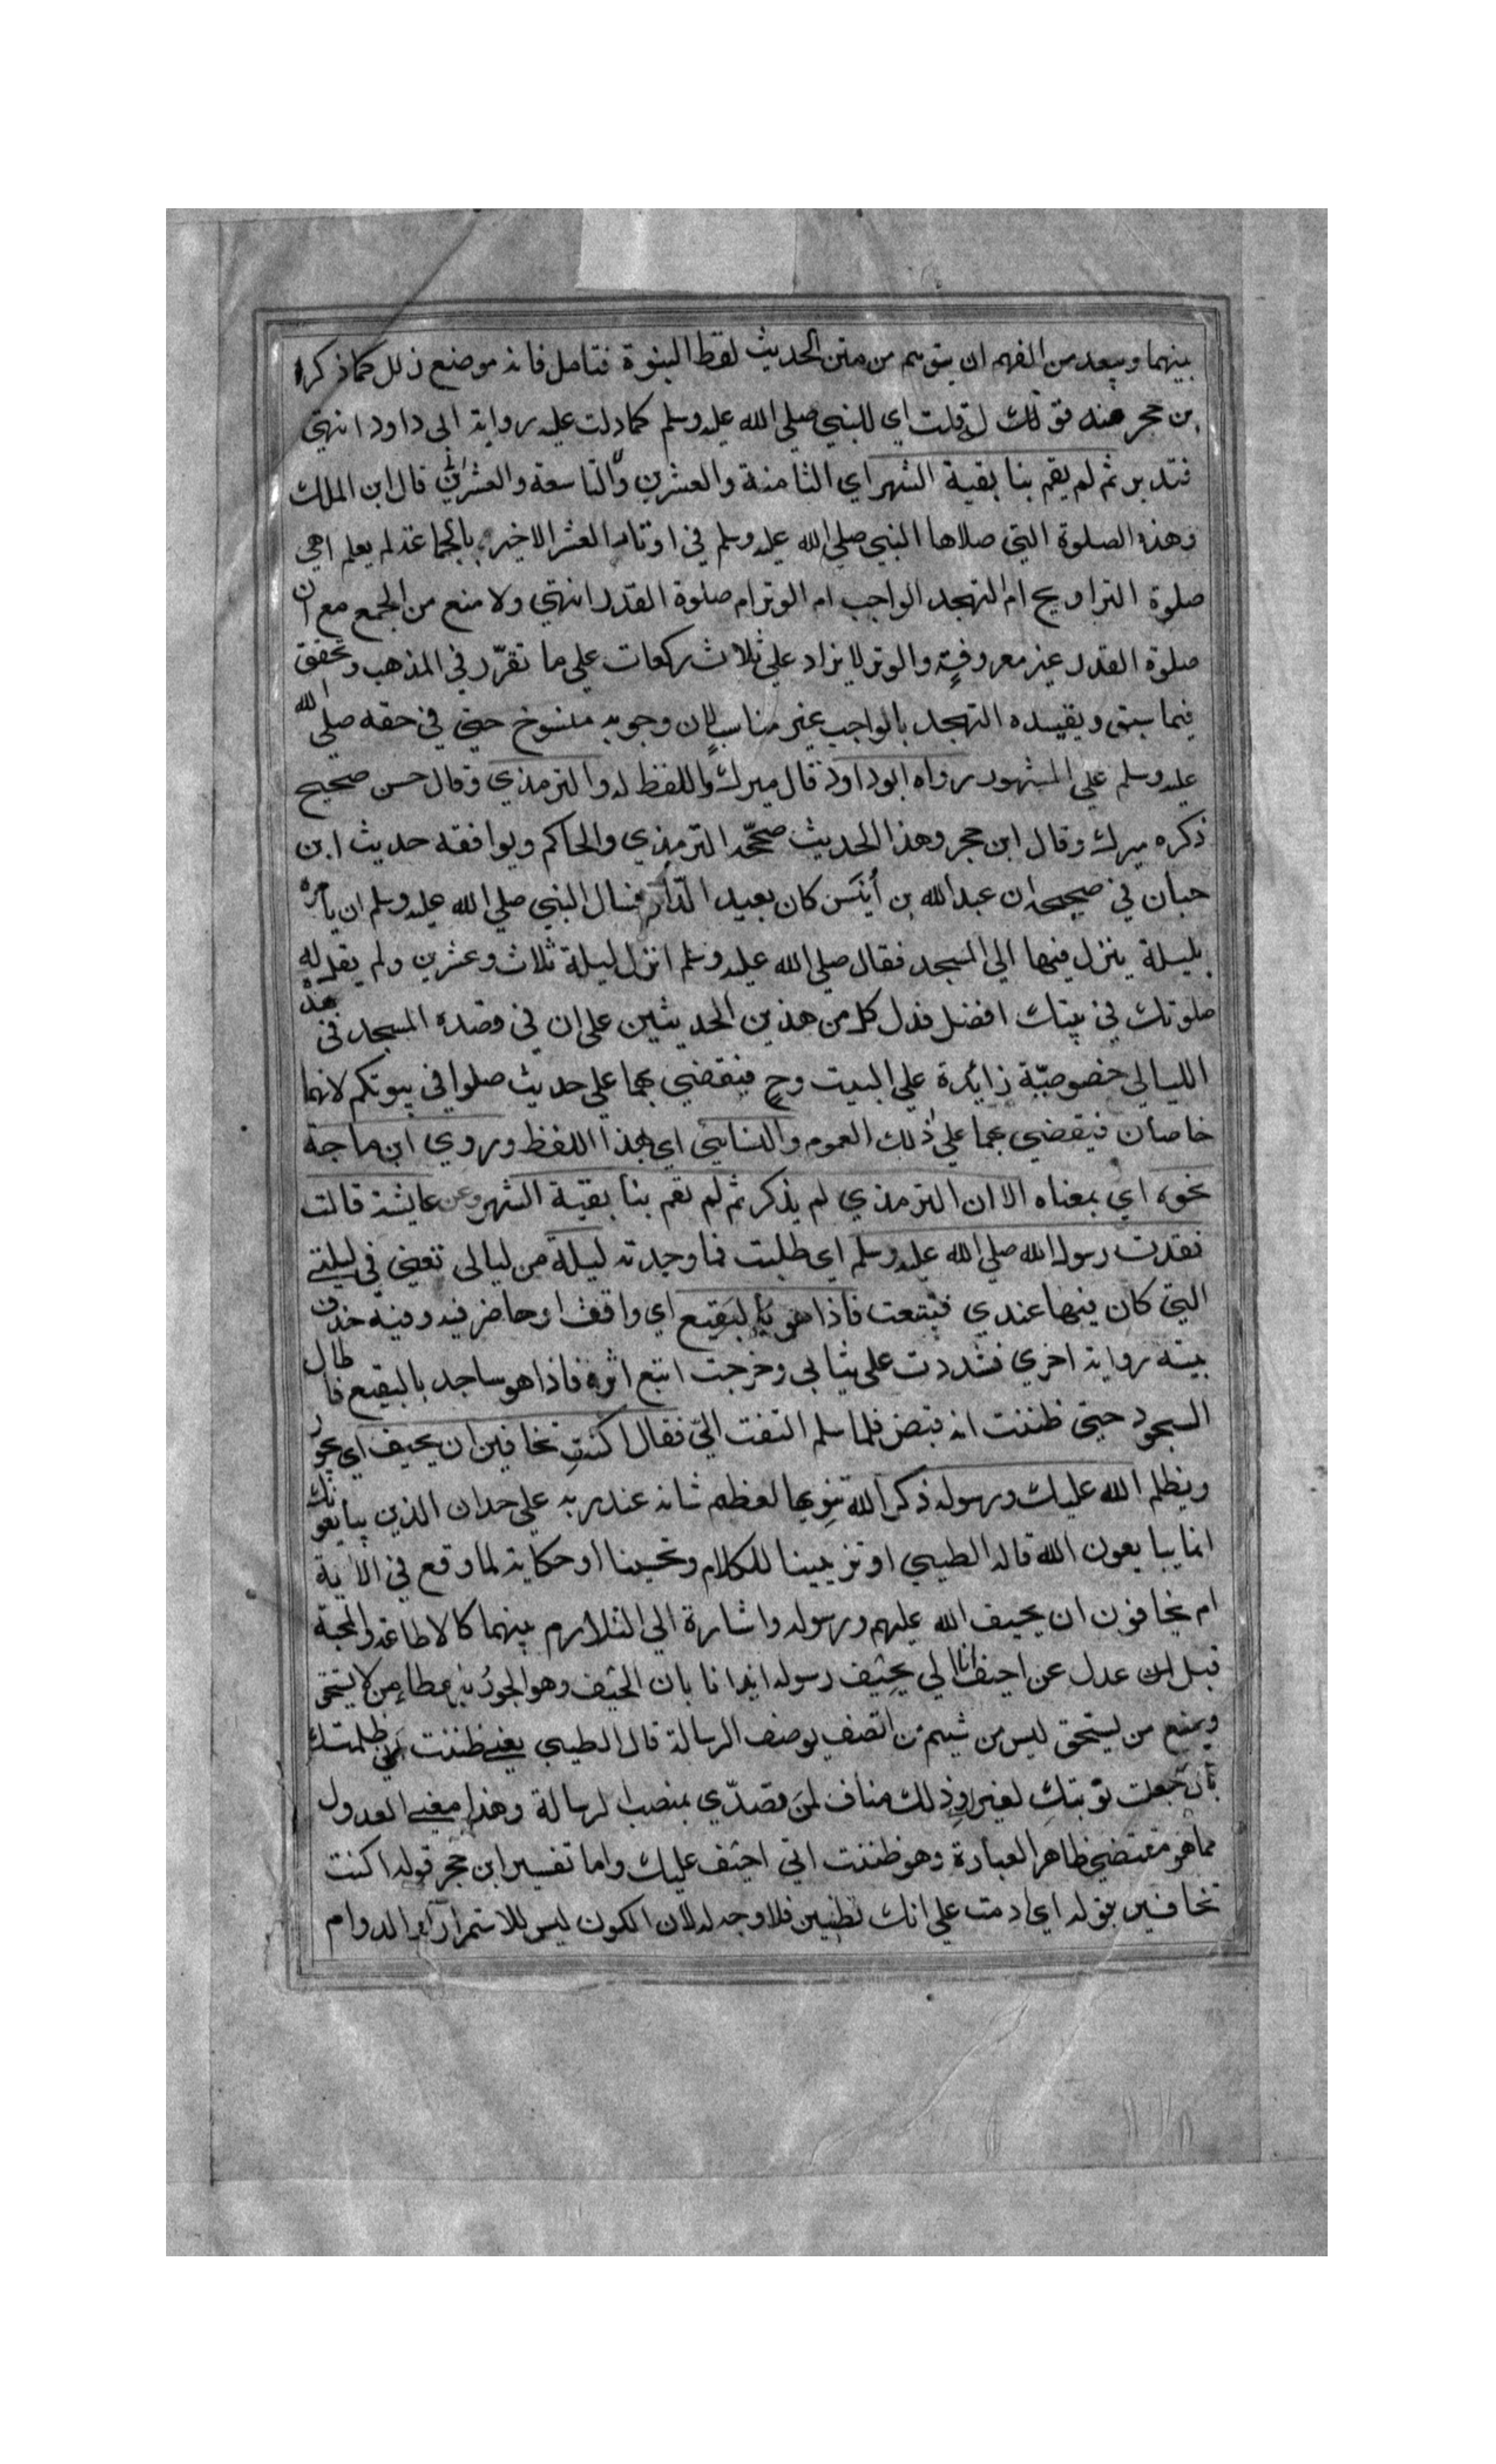 بينهما ويبعد من الفهم ان يتوهم من متن الحديث لفظ البنوة فتامل فانه موضع زلل كما ذكر ا
بن حجر عنه قوله قلت اي للنبي صلي الله عليه وسلم كما دلت عليه رواية ابي داود انتهي
فتدبر ثم لم يقم بنا بقية الشهر اي الثامنة والعشرين والتاسعة والعشرين قال ابن الملك
وهذه الصلوة التي صلاها النبي صلي الله عليه وسلم في اوتار العشر الاخير بالجماعة لم يعلم اهي
صلوة التراويح ام التهجد الواجب ام الوتر ام صلوة القدر انتهي ولا منع من الجمع مع ان
صلوة القدر غير معروفة والوتر لا يزاد علي ثلاث ركعات علي ما تقرّر في المذهب وتحقق
فيما سبق وتقييده التهجد بالواجب غير مناسب لان وجوبه منسوخ حتي في حقه صلي الله
عليه وسلم علي المشهور رواه ابو داود قال ميرك واللفظ له والترمذي وقال حسن صحيح
ذكره ميرك وقال ابن حجر وهذا الحديث صحّحه الترمذي والحاكم ويوافقه حديث ابن
حبان في صحيحه ان عبد الله بن أنيس كان بعيد الدّار فسال النبي صلي الله عليه وسلم ان يأمره
بليلة ينزل فيها الي المسجد فقال صلي الله عليه وسلم انزل ليلة ثلاث وعشرين ولم يقل له
صلوتك في بيتك افضل فدل كل من هذين الحديثين علي ان في قصده المسجد في هذه
الليالي خصوصيّة زائدة علي البيت وح فيقضي بهما علي حديث صلوا في بيوتكم لانهما
خاصان فيقضي بهما علي ذلك العموم والنسائي اي بهذا اللفظ وروي ابن ماجة
نحوه اي بمعناه الا ان الترمذي لم يذكر ثم لم يقم بنا بقية الشهر وعن عايشة قالت
فقدت رسول الله صلي الله عليه وسلم اي طلبت فما وجدته ليلة من ليالي تعني في ليلتي
التي كان فيها عندي فتتبعت فاذا هو بالبقيع اي واقف او حاضر فيه وفيه حذف
بينته رواية اخري فشددت علي ثيابي وخرجت اتبع اثره فاذا هو ساجد بالبقيع فاطال
السجود حتي ظننت انه قبض فلما سلم التفت اليّ فقال اكنتِ تخافين ان يحيف اي يجور
ويظلم الله عليك ورسوله ذكر الله تنويها لعظم شانه عند ربه علي حد ان الذين يبايعونك
انما يبايعون الله قاله الطيبي او تزيينا للكلام وتحسينا او حكاية لما وقع في الاية
ام يخافون ان يحيف الله عليهم ورسوله واشارة الي التلازم بينهما كالاطاعة والمحبة
قيل عدل عن احيف انا الي يحيف رسوله ايذانا بان الحيف وهو الجور باعطاء من لا يستحق
ويمنع من يستحق ليس من شيم من اتصف بوصف الرسالة قال الطيبي يعني ظننت اني ظلمتك
بان جعلت نوبتك لغيرك وذلك مناف لمن تصدّي بمنصب الرسالة وهذا معني العدول
مما هو مقتضي ظاهر العبارة وهو ظننت اني احيف عليك واما تفسير ابن حجر قوله اكنت
تخافين بقوله اي ادمت علي انك تظنين فلا وجه له لان الكون ليس للاستمرار والدوام